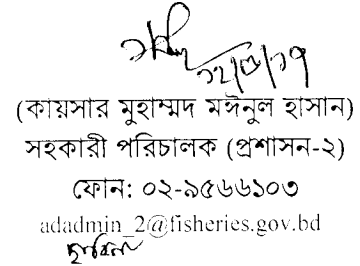 ১২/৩/১৭
(কায়সার মুহাম্মদ মঈনুল হাসান)
সহকারী পরিচালক (প্রশাসন-২)
ফোন: ০২-৯৫৬৬১০৩
adadmin_2@fisheries.gov.bd